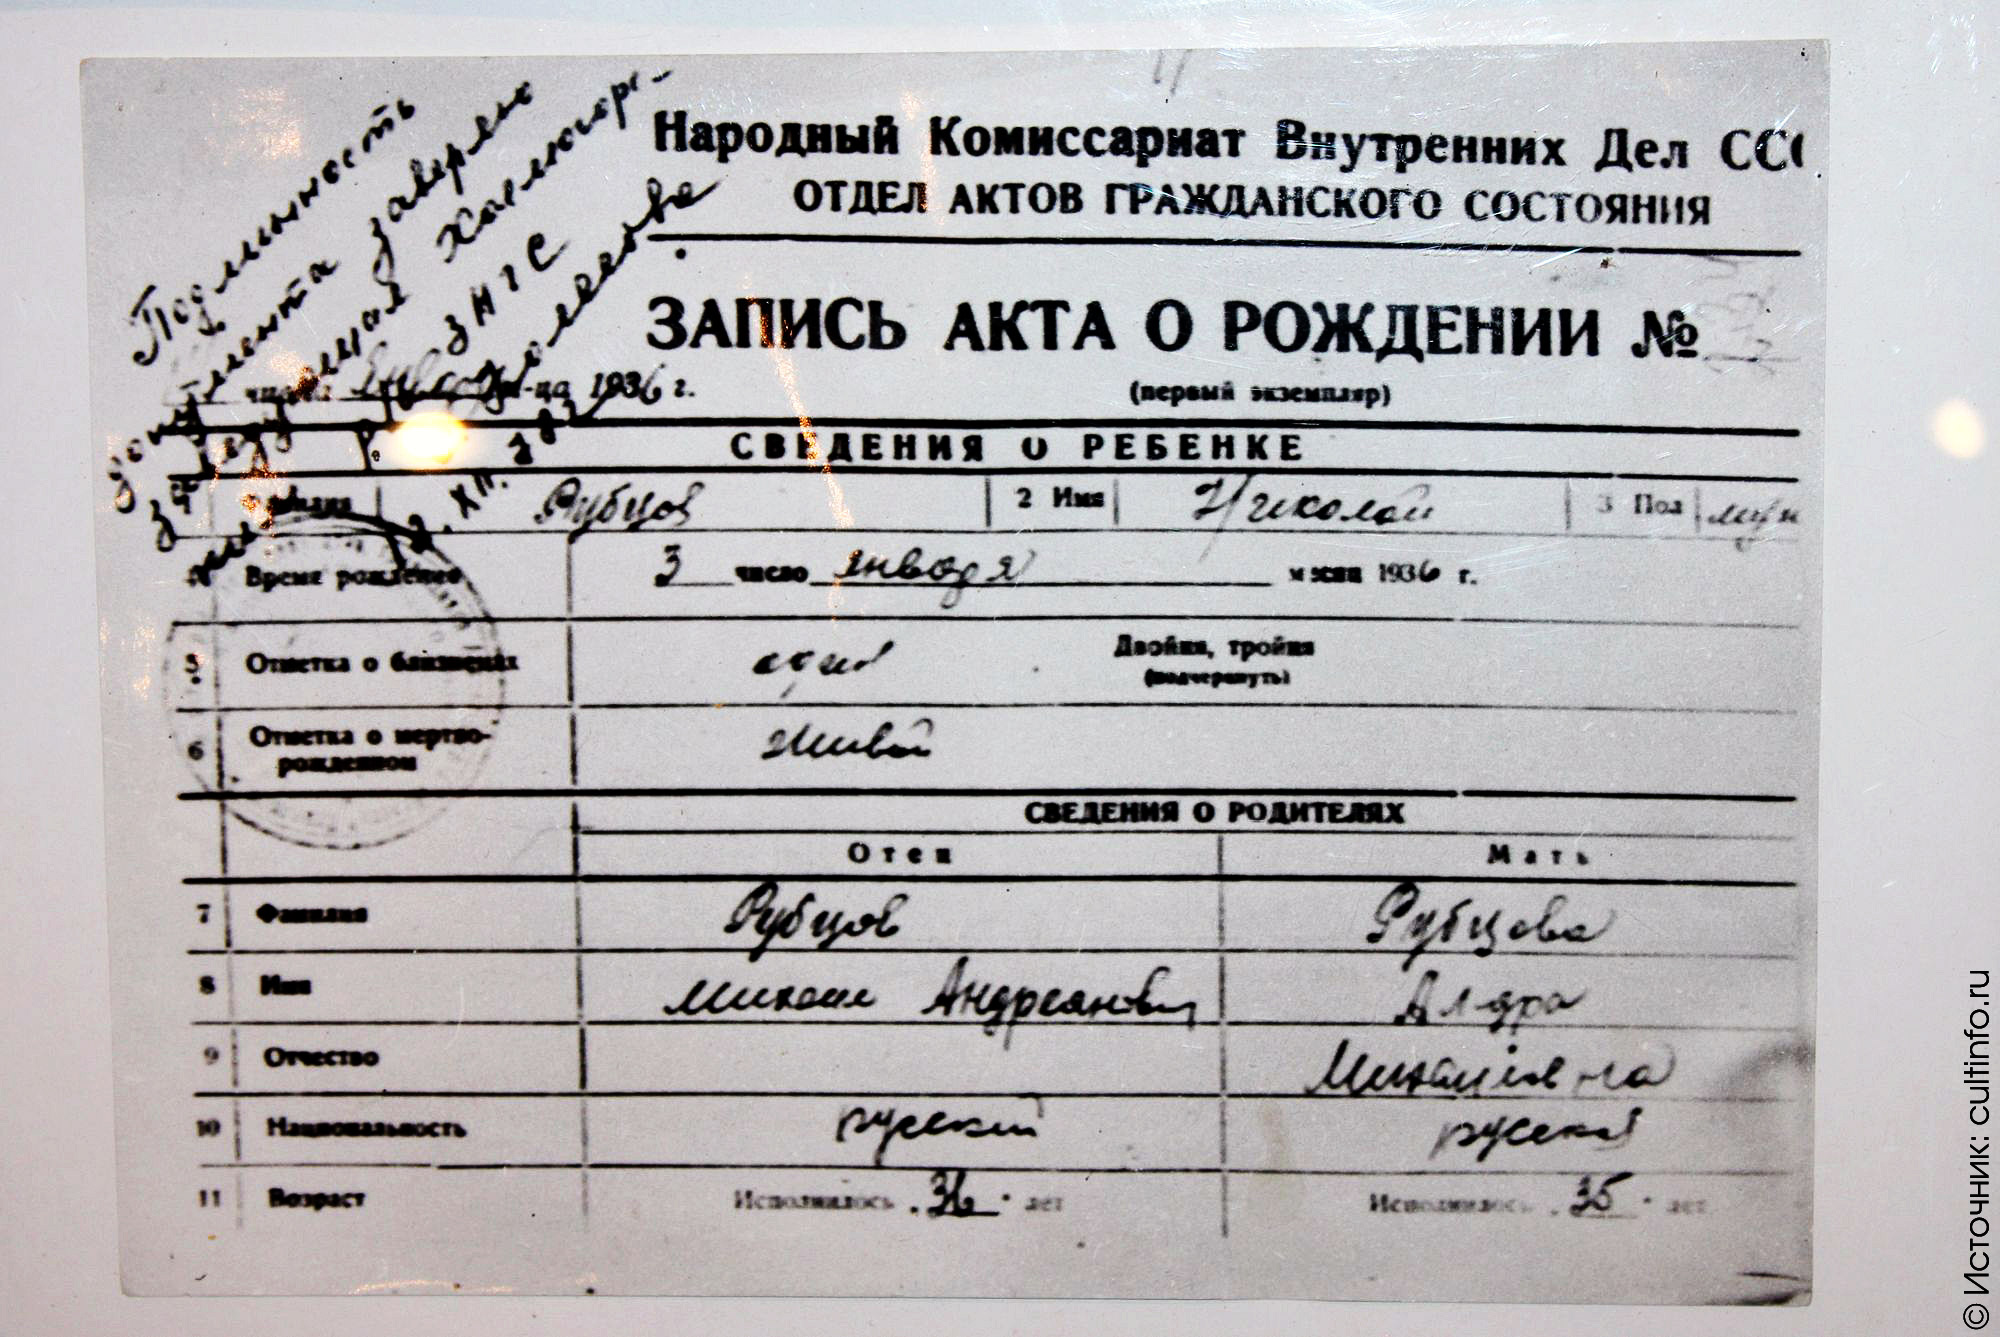 Подлинность
документа заверяю
Холмогор-
ЗАГС
Народный Комиссариат Внутренних Дел ССС
ОТДЕЛ АКТОВ ГРАЖДАНСКОГО СОСТОЯНИЯ
ЗАПИСЬ АКТА О РОЖДЕНИИ №
м-ца 1936 г.
(первый экземпляр)
СВЕДЕНИЯ О РЕБЕНКЕ
Рубцов 2 Имя Николай 3 Пол муж
4 Время рождения 3 число января месяца 1936 г.
5 Отметка о близнецах один Двойня, тройня
(подчеркнуть)
6 Отметка о мертво-
рожденном живой
СВЕДЕНИЯ О РОДИТЕЛЯХ
Отец Мать
7 Фамилия Рубцов Рубцова
8 Имя Михаил Андреянович Ал-дра
9 Отчество Михайловна
10 Национальность русский русская
11 Возраст Исполнилось 36 лет Исполнилось 35 лет
© Источник: cultinfo.ru